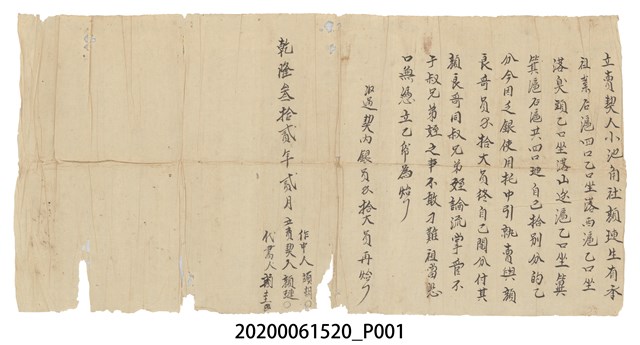 立賣契人小池角社顏璉生有承
祖業石滬四口乙口坐落西滬乙口坐
落臭頭乙口坐落山边滬乙口坐箕
箕滬石滬共四口璉自己拾別分的乙
分今因乏銀使用托中引就賣與顏
良哥員 拾大員終自己鬮分付其
顏良哥同叔兄弟姪論流掌管不
于叔兄弟姪之事不敢刁难祖當恐
口無憑立乙紙為炤
収過契內銀員 拾大員再炤
乾隆叁拾貳年貳月 立賣契人顏璉
作中人 顏
代書人
20200061520_P001